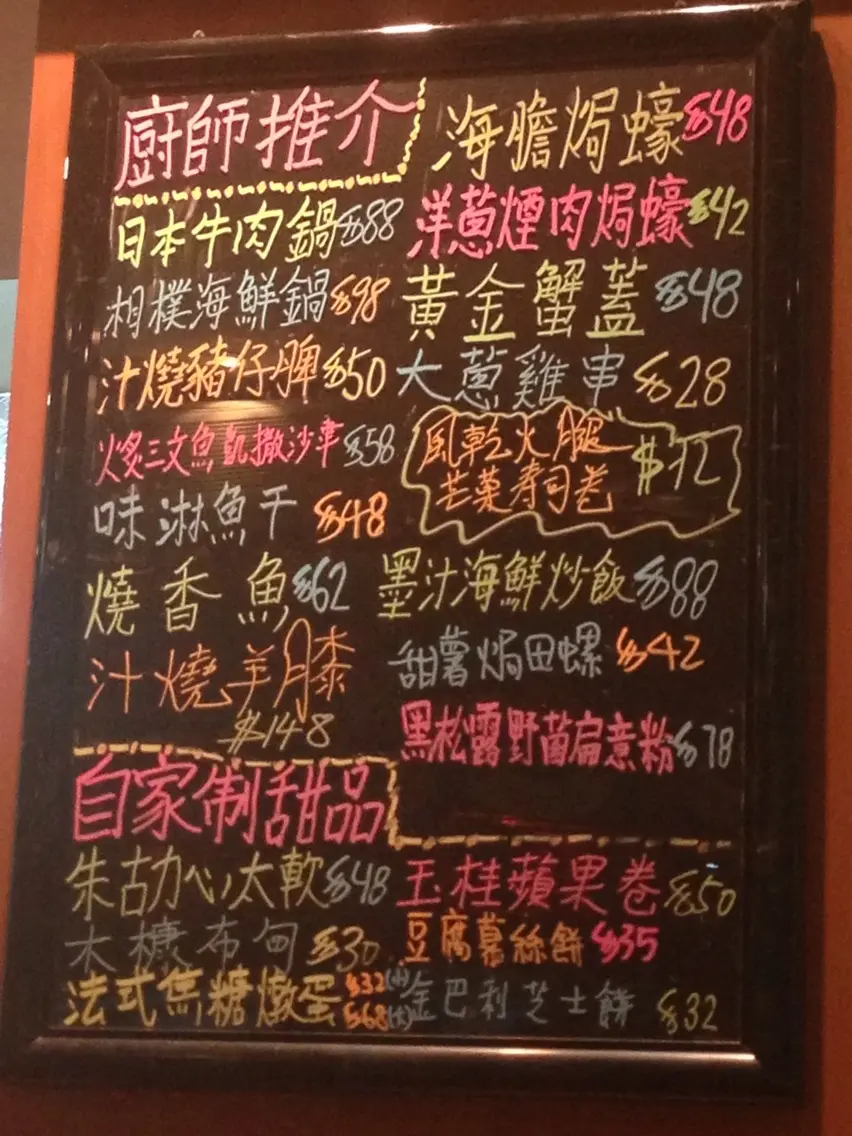 廚師推介
日本牛肉鍋$88
相樸海鮮鍋$98
汁燒豬仔脾$50
火炙三文魚凱撒沙律$58
味淋魚干 $48
燒香魚$62
汁燒羊膝
$148
海膽焗蠔$48
洋蔥煙肉焗蠔$42
黃金蟹蓋$48
大蔥雞串$28
風乾火腿
芒菓寿司卷 $72
墨汁海鮮炒飯$88
甜薯焗田螺$42
黑松露野菌扁意粉$78
自家制甜品
朱古力心太軟$48
木槺布甸 $30
法式焦糖燉蛋 $32(小)
$68(大)
玉桂蘋果卷$50
豆腐慕絲餅$35
金巴利芝士餅 $32